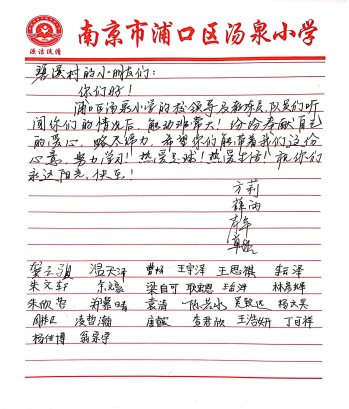 南京市浦口区汤泉小学
碧溪村的小朋友们：
你们好！
浦口区汤泉小学的校领导及教练员、队员们听
闻你们的情况后，触动非常大！纷纷奉献自己
的爱心，略尽绵力，希望你们能带着我们这份
心意，努力学习！热爱足球！热爱生活！祝你们
永远阳光、快乐！
方莉
薛雨
温天泽 曹杨 王宇泽 王思祺
朱文轩 梁自可 林彦辉
朱欣哲 郑慕晴 袁清 陈若水 吴致远 杨大昊
凌哲瀚 唐毓 查君欣 王浩妍 丁可祥
杨佳博 翁家宁